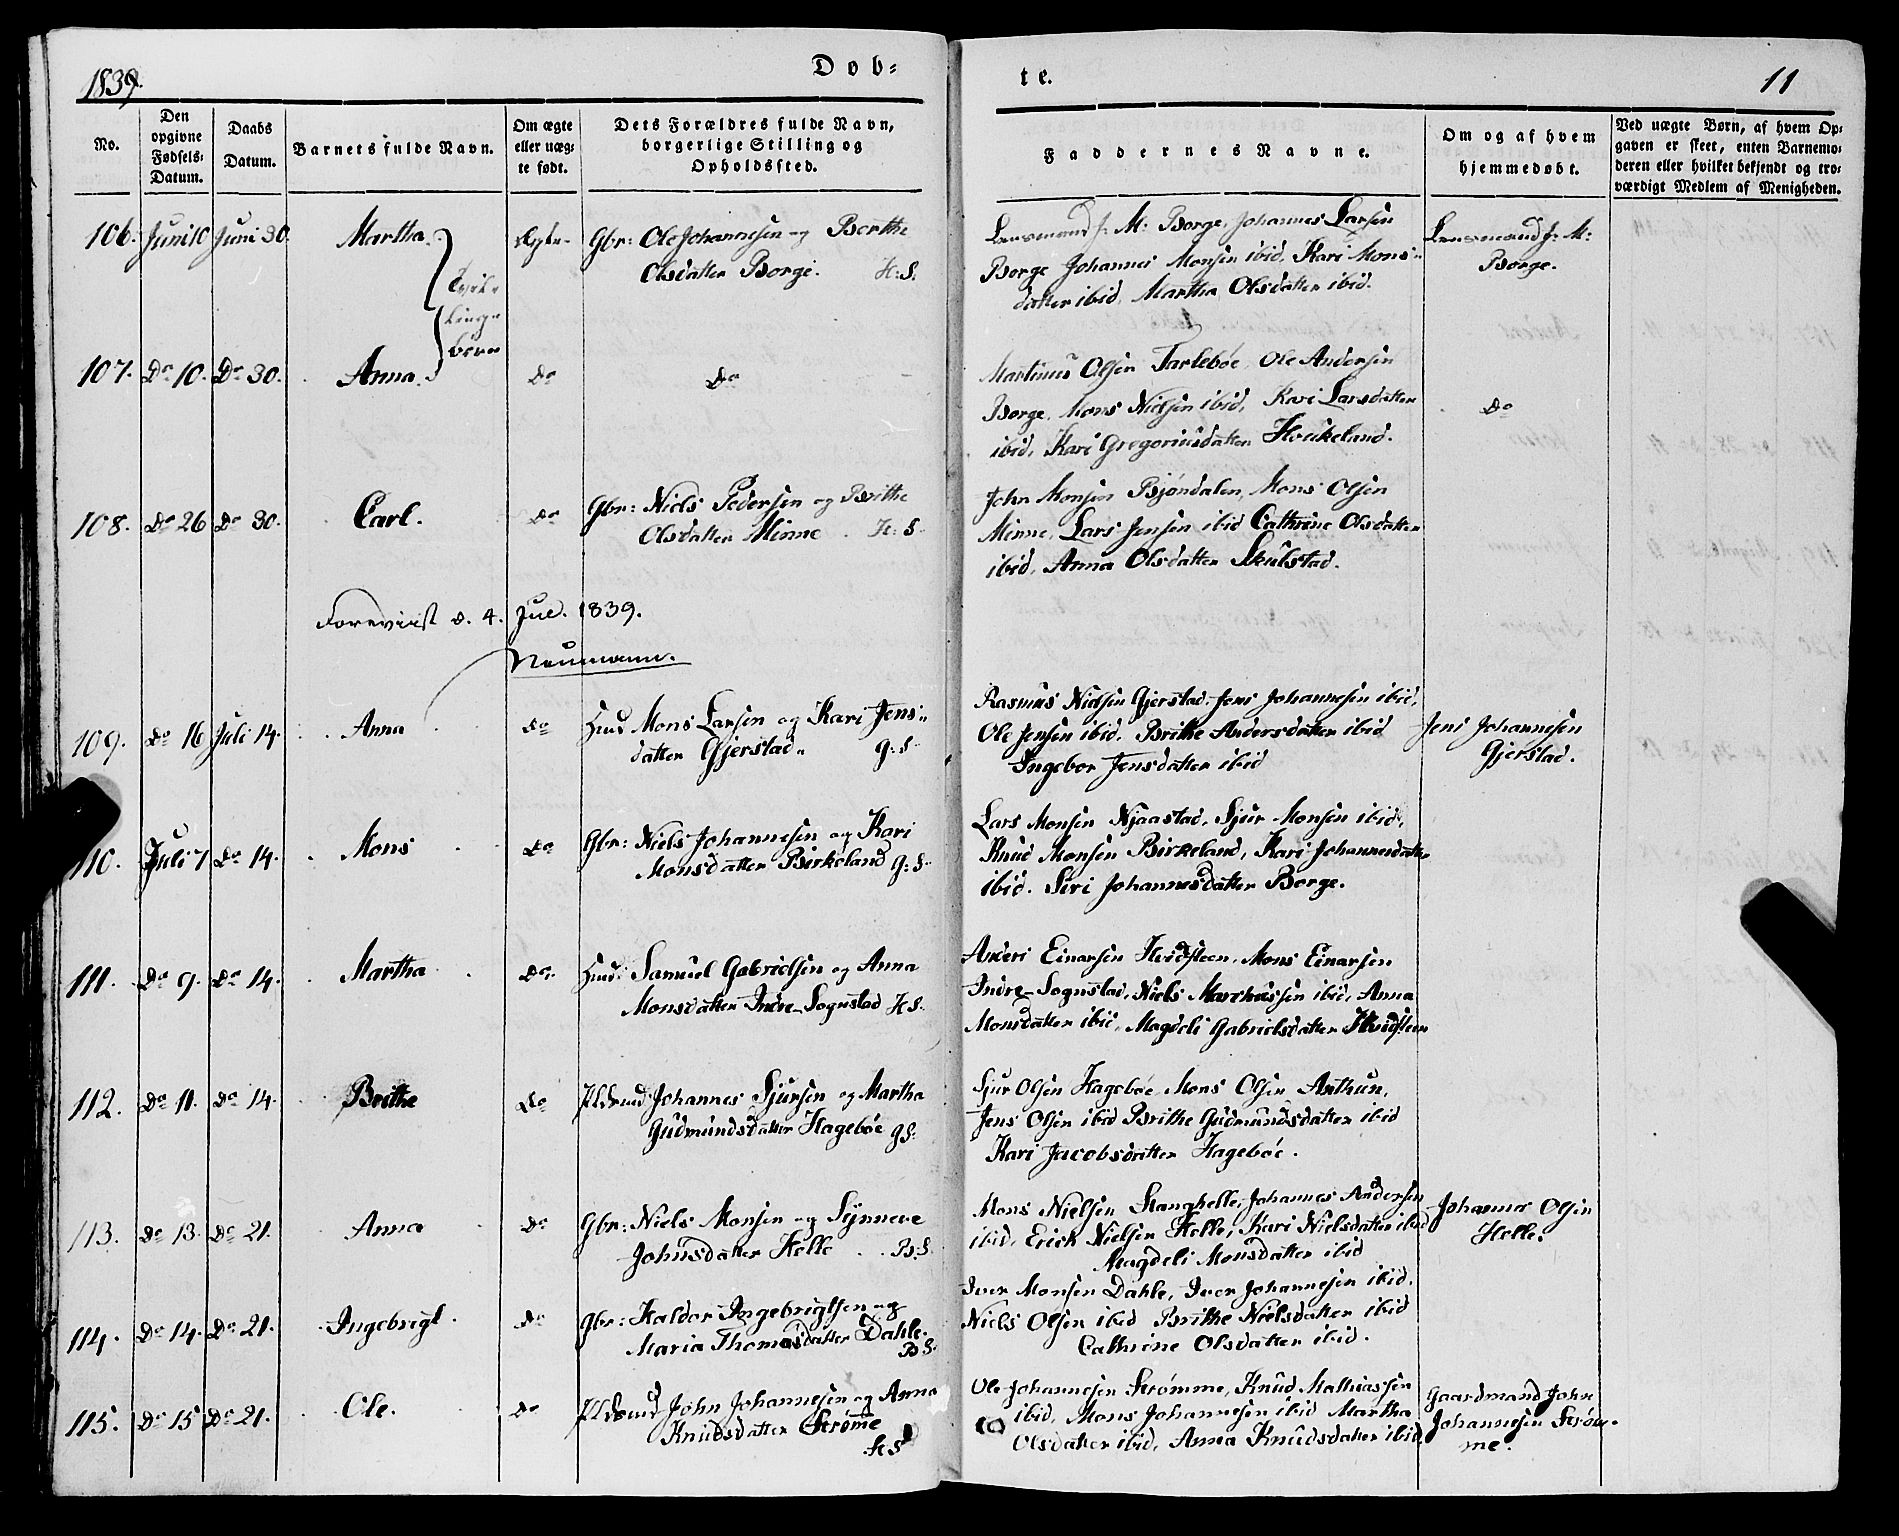 1839.
Døb-
te.
11
No.
Den opgivne Fødsels-Datum.
Daabs Datum.
Barnets fulde Navn.
Om ægte eller uæg-te født.
Dets Forældres fulde Navn, borgerlige Stilling og Opholdssted.
Faddernes Navne.
Om og af hvem hjemmedøbt.
Ved uægte Børn, af hvem Op-gaven er skeet, enten Barnemo-deren eller hvilket bekjendt og tro-værdigt Medlem af Menigheden.
106. Juni 10 Juni 30. Martha Ægte Gbr: Ole Johannesen og Berthe
Olsdatter Borge. H:S.
Lensmand J: M: Borge, Johannes Larsen
Borge Johannes Monsen ibid. Kari Mons-
datter ibid, Martha Olsdatter ibid.
Lensmand J: M:
Borge.
Tvil-
linge
børn
107. Do 10. Do 30. Anna Do Do
Martinus Olsen Tarlebøe, Ole Andersen
Borge, Mons Nielsen ibid, Kari Larsdatter
ibid, Kari Gregoriusdatter Houkeland.
Do
108. Do 26 Do 30. Carl. Do Gbr: Niels Pedersen og Brithe
Olsdatter Minne H:S.
John Monsen Bjøndalen, Mons Olsen
Minne, Lars Jensen ibid Cathrine Olsdatter
ibid, Anna Olsdatter Skulstad.
Foreviist d. 4. Jul. 1839.
Neumann.
109. Do 16 Juli 14. Anna Do Huus Mons Larsen og Kari Jens-
datter Gjerstad. G:S.
Rasmus Nielsen Gjerstad, Jens Johannesen ibid,
Ole Jensen ibid, Brithe Andersdatter ibid
Ingebor Jensdatter ibid
Jens Johannesen
Gjerstad.
110. Juli 7 Do 14. Mons Do Gbr: Niels Johannesen og Kari
Monsdatter Birkeland G:S.
Lars Monsen Njaastad, Sjur Monsen ibid,
Knud Monsen Birkeland, Kari Johannesdatter
ibid. Siri Johannesdatter Borge.
111. Do 9. Do 14. Martha Do Huus: Samuel Gabrielsen og Anna
Monsdatter Indre-Sognstad H S.
Anders Einarsen Hvidsteen, Mons Einarsen
Indre-Sognstad, Niels Marchussen ibid, Anna
Monsdatter ibid, Magdeli Gabrielsdatter Hvidsteen
112. Do 11. Do 14. Brithe Do Johannes Sjursen og Martha
Gudmundsdatter Hagebøe G S.
Sjur Olsen Hagebøe, Mons Olsen Arthun,
Jens Olsen ibid Brithe Gudmundsdatter ibid
Kari Jacobsdatter Hagebøe.
113. Do 13. Do 21. Anna Do Gbr: Niels Monsen og Synneve
Johnsdatter Helle B:S.
Mons Nielsen Stanghelle, Johannes Andersen
ibid, Erick Nielsen Helle, Kari Nielsdatter ibid
Magdeli Monsdatter ibid
Johannes Olsen
Helle.
114. Do 14. Do 21. Ingebrigt Do Gbr: Haldor Ingebrigtsen og
Maria Thomasdatter Dahle.
B S.
Iver Monsen Dahle, Iver Johannesen ibid,
Niels Olsen ibid Brithe Nielsdatter ibid
Cathrine Olsdatter ibid.
115. Do 15 Do 21. Ole. Do John Johannesen og Anna
Knudsdatter Strøme
H S
Ole Johannesen Strømme, Knud Mathiassen
ibid, Mons Johannesen ibid Martha
Olsdatter ibid, Anna Knudsdatter ibid.
Gaardmand John
Johannesen Strøm-
me.